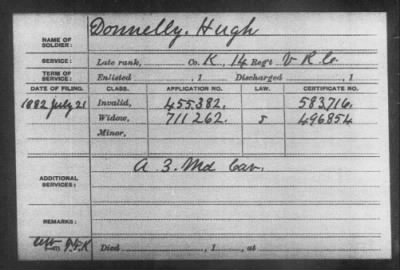 NAME OF SOLDIER: Donnelly, Hugh
SERVICE: Late rank, Co. K, 14 Regt V R C.
TERM OF SERVICE: Enlisted , 1 Discharged , 1
DATE OF FILING. CLASS. APPLICATION NO. LAW. CERTIFICATE NO.
1882 July 21 Invalid, 455.382. 583,716.
Widow, 711262. 496854
Minor,
ADDITIONAL SERVICES: A 3. Md Cav.
REMARKS:
Died , 1 , at